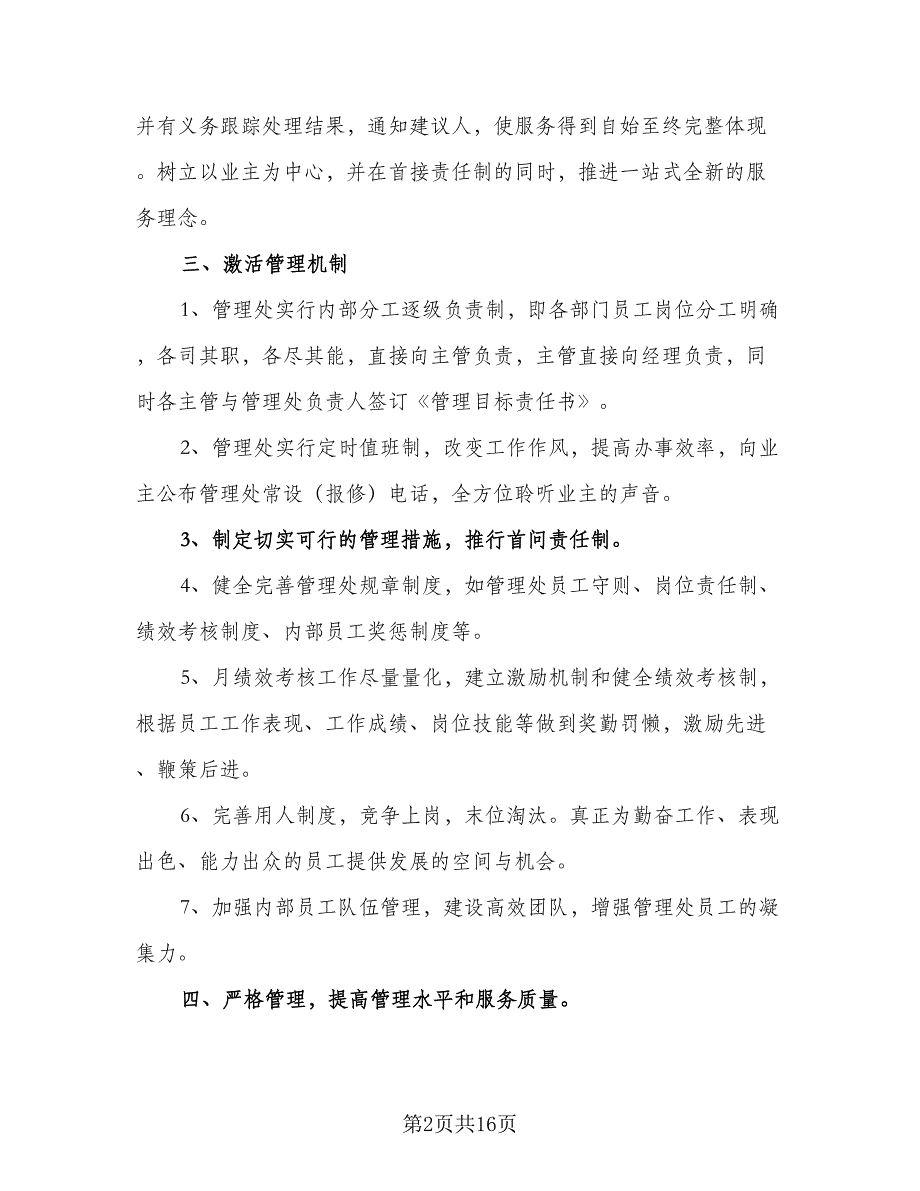 并有义务跟踪处理结果，通知建议人，使服务得到自始至终完整体现
。树立以业主为中心，并在首接责任制的同时，推进一站式全新的服
务理念。
三、激活管理机制
1、管理处实行内部分工逐级负责制，即各部门员工岗位分工明确
，各司其职，各尽其能，直接向主管负责，主管直接向经理负责，同
时各主管与管理处负责人签订《管理目标责任书》。
2、管理处实行定时值班制，改变工作作风，提高办事效率，向业
主公布管理处常设（报修）电话，全方位聆听业主的声音。
3、制定切实可行的管理措施，推行首问责任制。
4、健全完善管理处规章制度，如管理处员工守则、岗位责任制、
绩效考核制度、内部员工奖惩制度等。
5、月绩效考核工作尽量量化，建立激励机制和健全绩效考核制，
根据员工工作表现、工作成绩、岗位技能等做到奖勤罚懒，激励先进
、鞭策后进。
6、完善用人制度，竞争上岗，末位淘汰。真正为勤奋工作、表现
出色、能力出众的员工提供发展的空间与机会。
7、加强内部员工队伍管理，建设高效团队，增强管理处员工的凝
集力。
四、严格管理，提高管理水平和服务质量。
第2页共16页